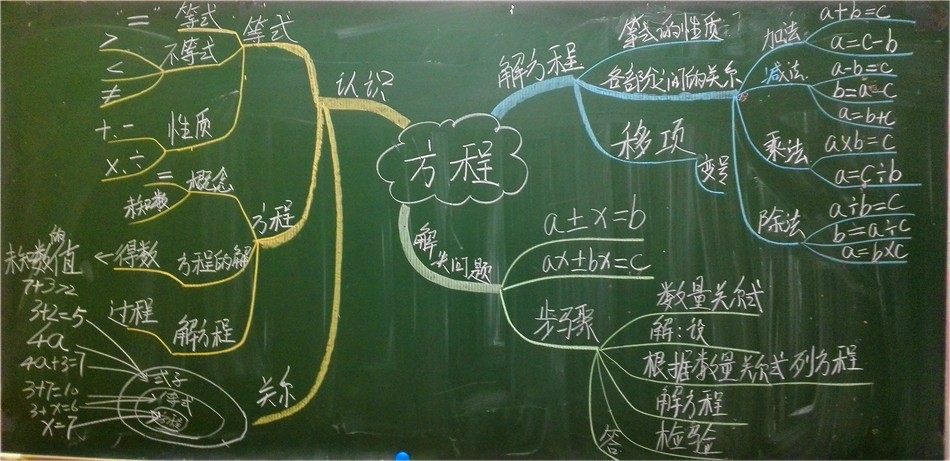 方程
认识
等式
等式
"="
不等式
>
<
≠
性质
+、-
×、÷
方程
概念
=
未知数
方程的解
得数
←
未知数的值
解方程
过程
关系
7+3>2
3+2=5
4a
4a+3=7
3+7=10
3+x=6
x=7
式子
等式
方程
解方程
等式的性质
各部分之间的关系
加法
a+b=c
a=c-b
减法
a-b=c
b=a-c
a=b+c
乘法
a×b=c
a=c÷b
除法
a÷b=c
b=a÷c
a=b×c
移项
变号
解决问题
a±x=b
ax±bx=c
步骤
数量关系式
解:设
根据数量关系式列方程
解方程
检验
答